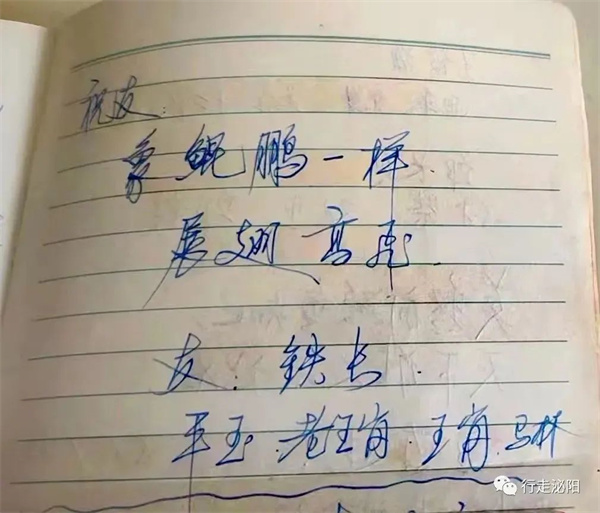 祝友：
象鲲鹏一样.
展翅高飞.
友：铁长.
平玉.老汪肖.王肖.马林
行走泌阳